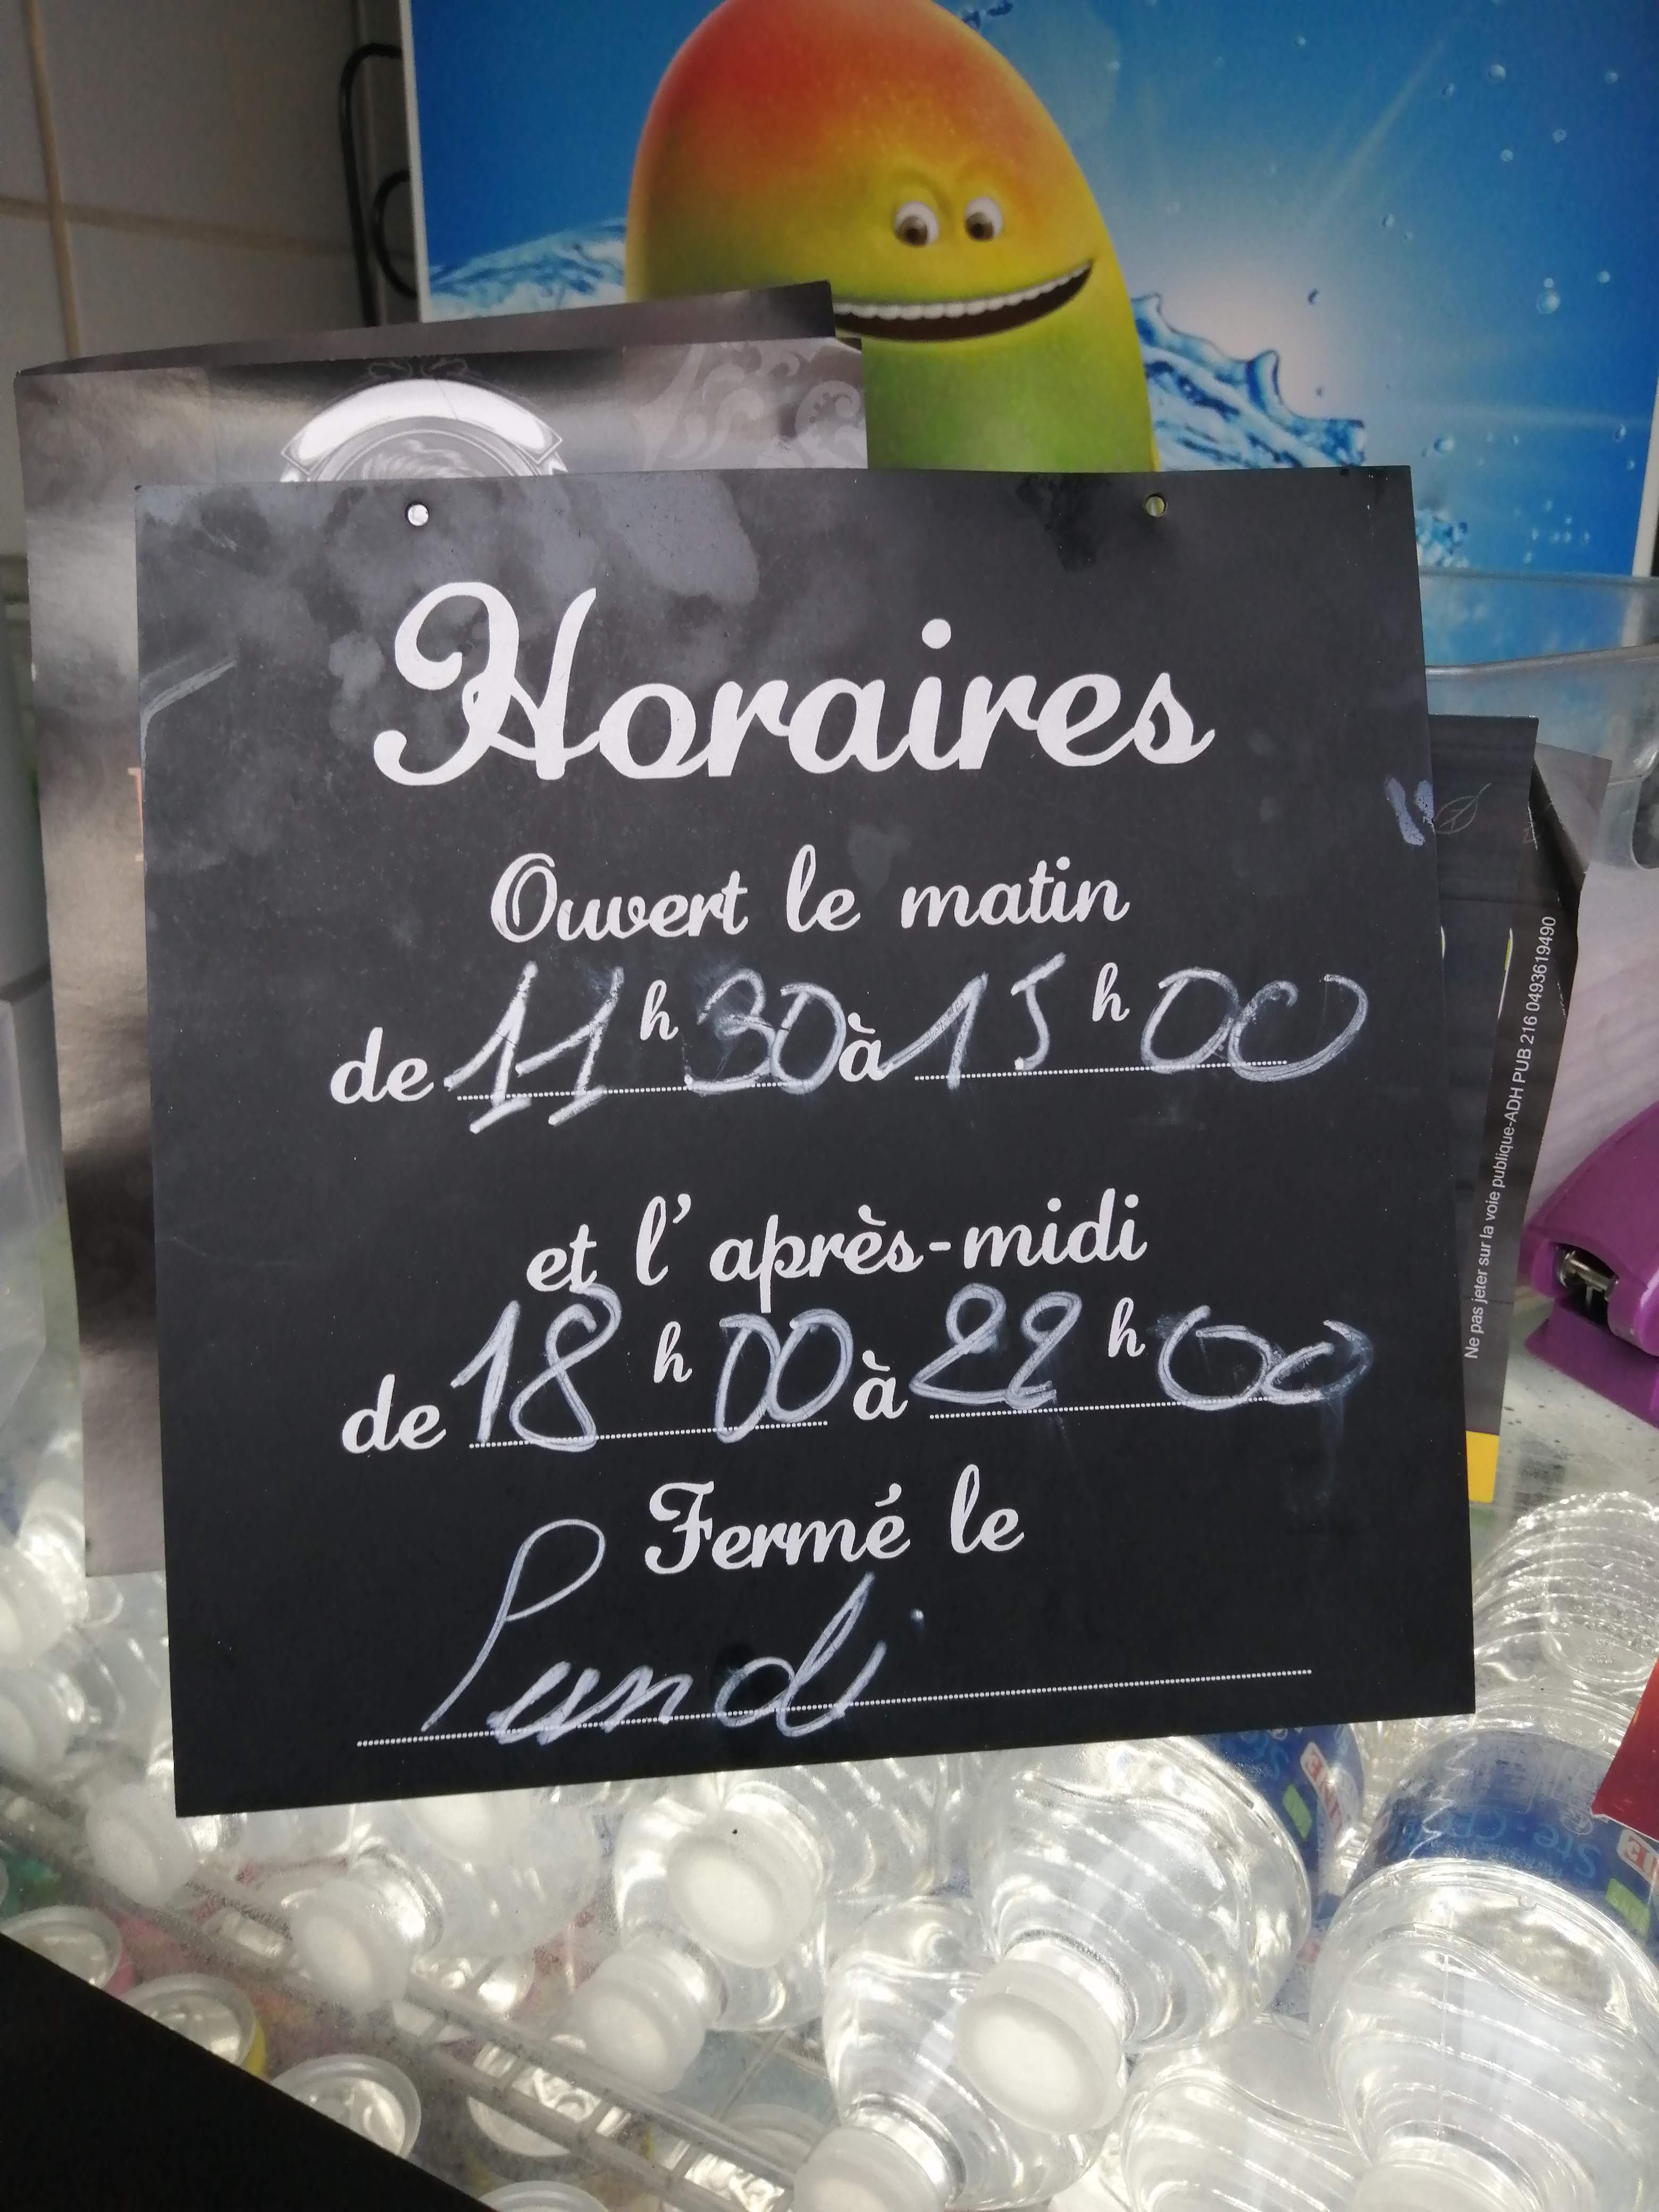 Horaires
Ouvert le matin
de 11 h 30 à 15 h 00
et l'après-midi
de 18 h 00 à 22 h 00
Fermé le
Lundi
Ne pas jeter sur la voie publique-ADH PUB 216 0493619490